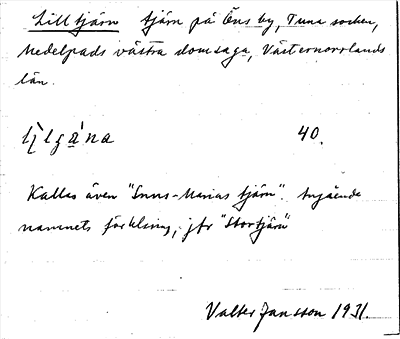 Lilltjärn tjärn på Öns by, Tuna socken,
Medelpads västra domsaga, Västernorrlands
län.
40.
Kallas även "Inns-Marias tjärn". Angående
namnets förklaring, jfr "Stortjärn"
Valter Jansson 1931.